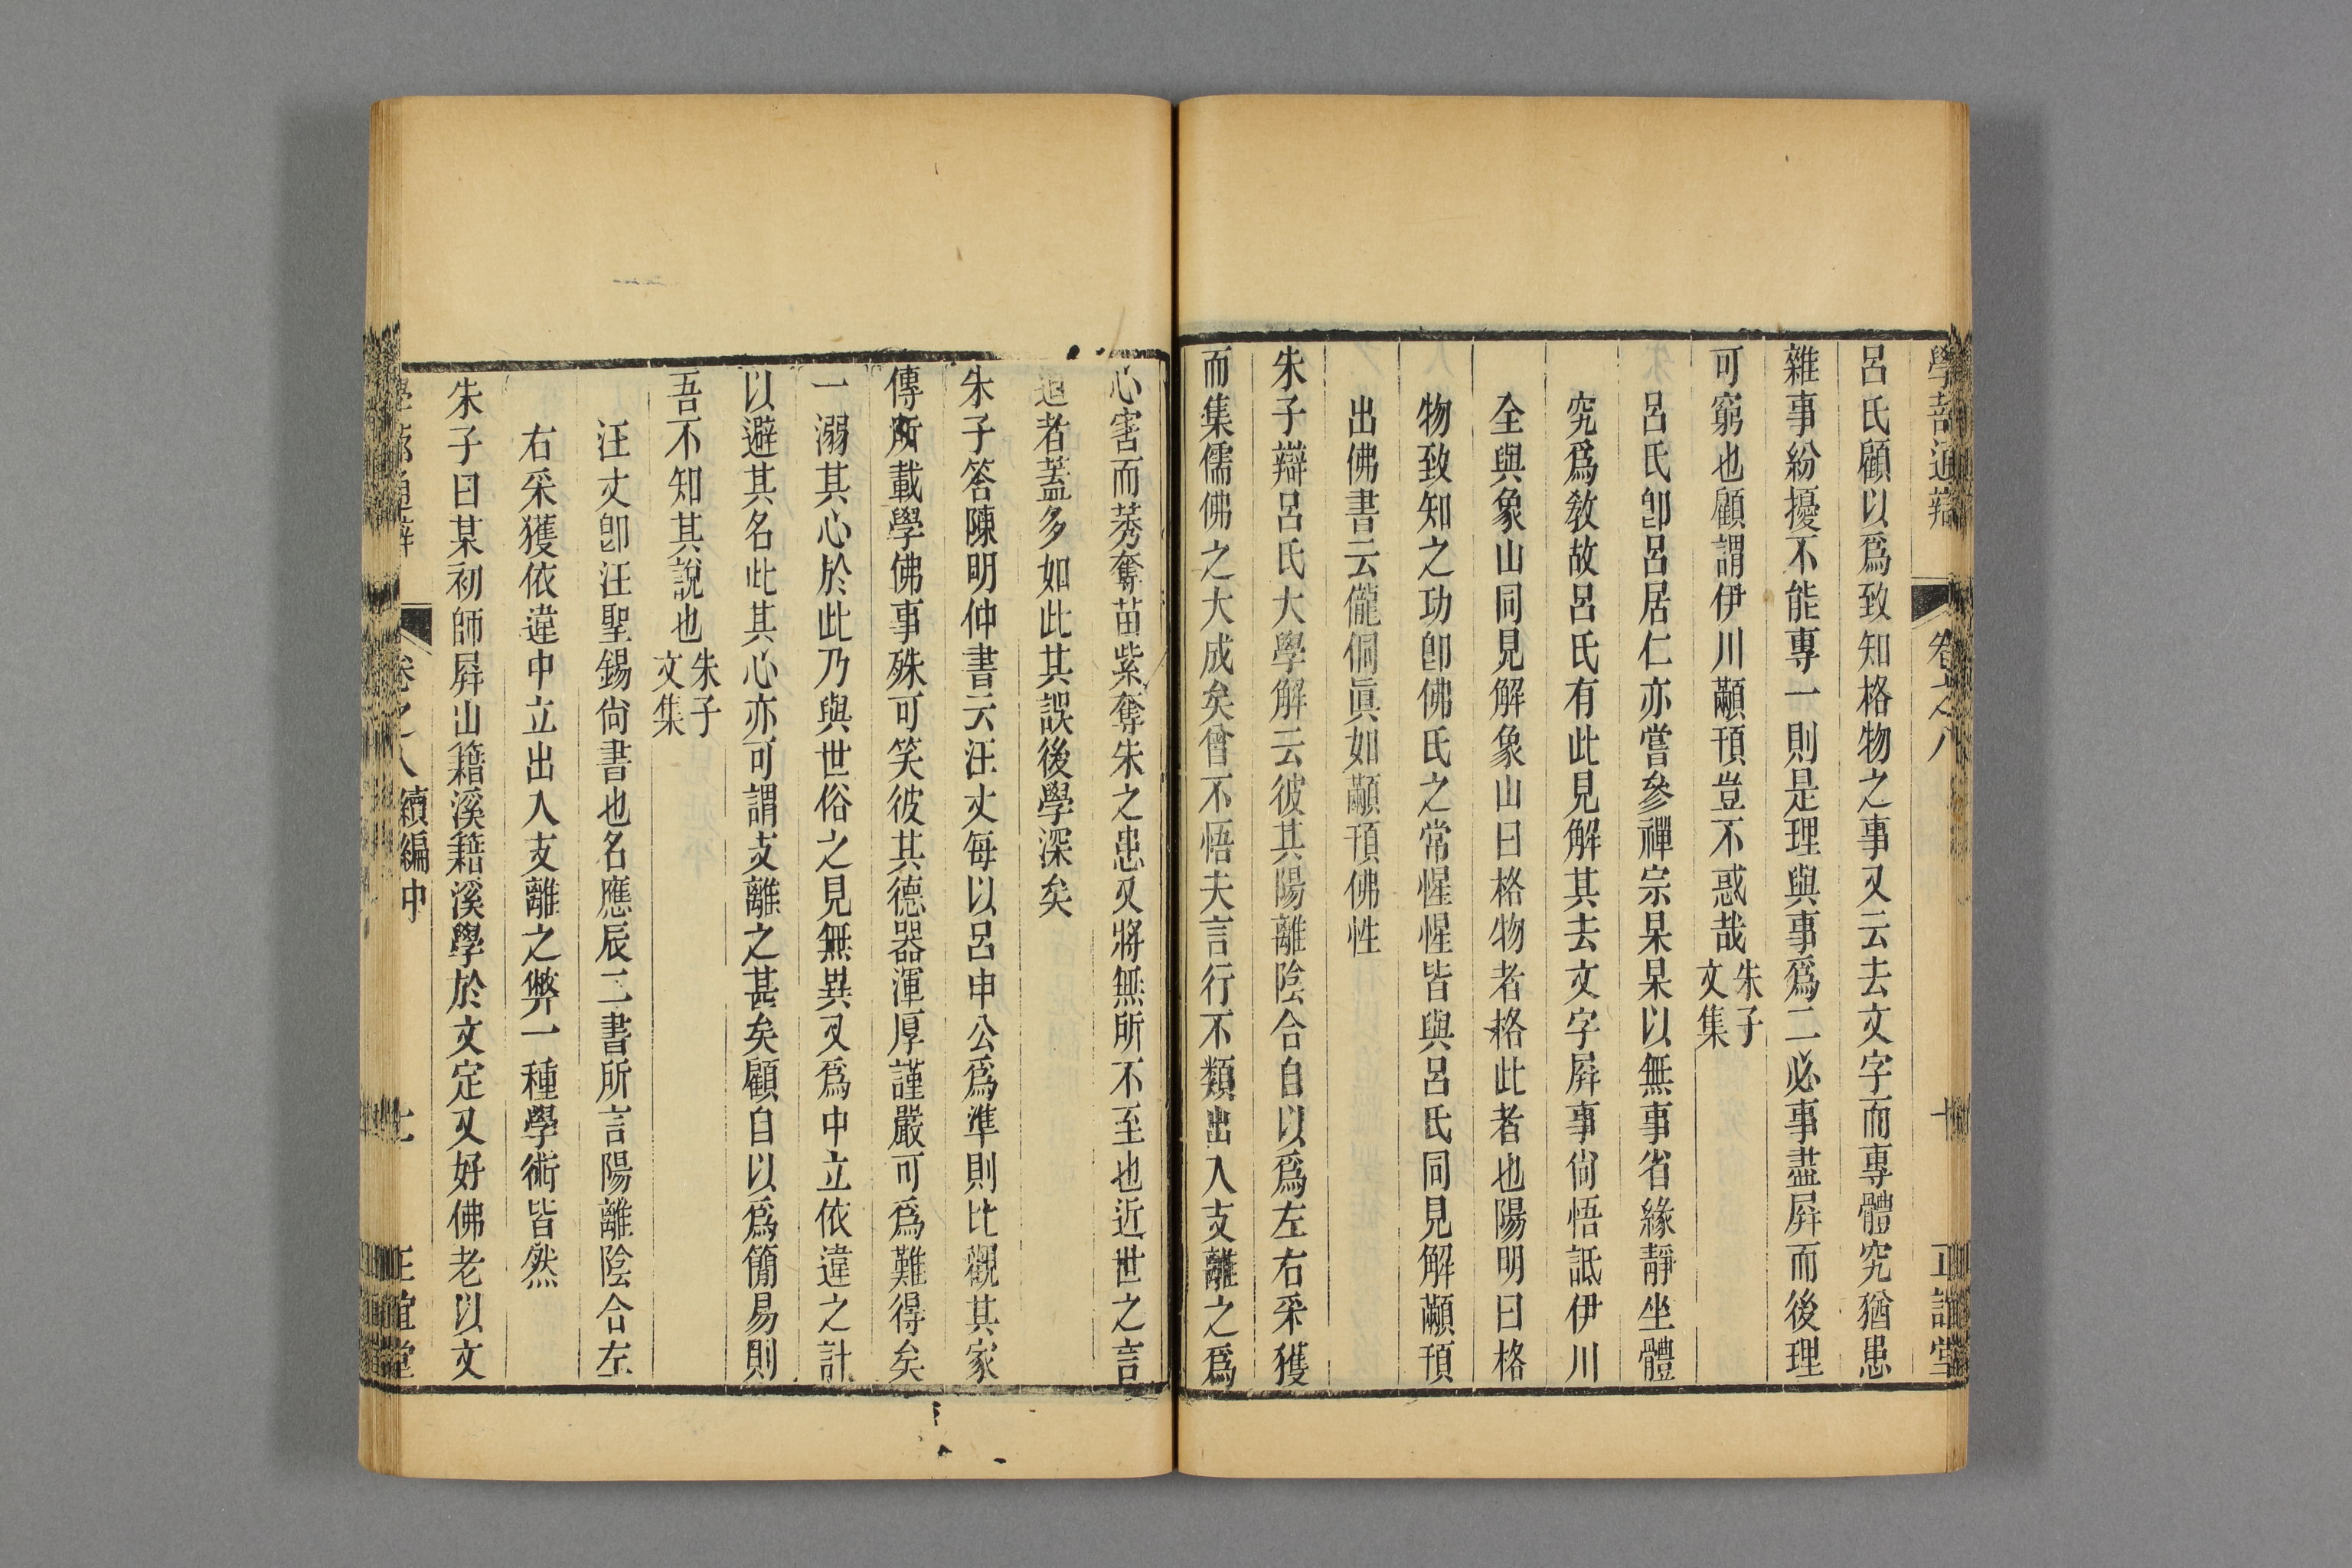 學蔀通辯 卷之八 十 正誼堂
呂氏顧以爲致知格物之事又云去文字而專體究猶患
雜事紛擾不能專一則是理與事爲二必事盡屛而後理
可窮也顧謂伊川顢頇豈不惑哉朱子文集
呂氏卽呂居仁亦嘗參禪宗杲杲以無事省緣靜坐體
究爲敎故呂氏有此見解其去文字屛事尙悟詆伊川
全與象山同見解象山曰格物者格此者也陽明曰格
物致知之功卽佛氏之常惺惺皆與呂氏同見解顢頇
出佛書云儱侗眞如顢頇佛性
朱子辯呂氏大學解云彼其陽離陰合自以爲左右采獲
而集儒佛之大成矣曾不悟夫言行不類出入支離之爲
心害而莠奪苗紫奪朱之患又將無所不至也近世之言
道者蓋多如此其誤後學深矣
朱子答陳明仲書云汪丈每以呂申公爲準則比觀其家
傳所載學佛事殊可笑彼其德器渾厚謹嚴可爲難得矣
一溺其心於此乃與世俗之見無異又爲中立依違之計
以避其名此其心亦可謂支離之甚矣顧自以爲簡易則
吾不知其說也朱子文集
汪丈卽汪聖錫尙書也名應辰二書所言陽離陰合左
右采獲依違中立出入支離之弊一種學術皆然
朱子曰某初師屛山籍溪籍溪學於文定又好佛老以文
學蔀通辯 卷之八 續編中 十一 正誼堂